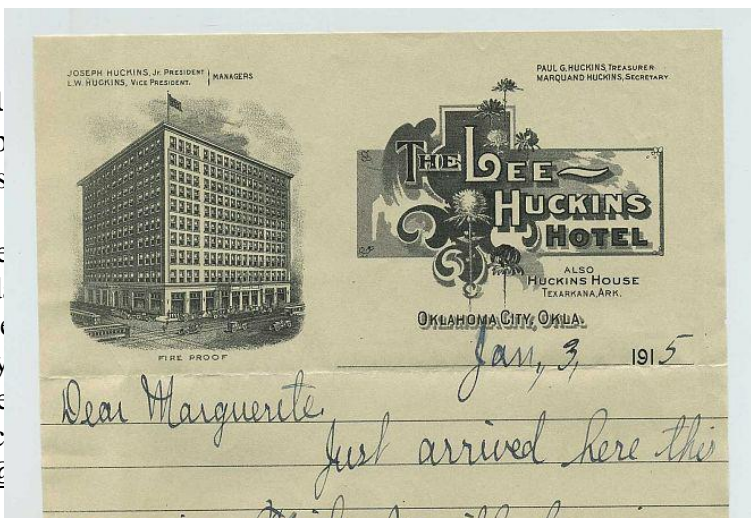 JOSEPH HUCKINS, Jr. PRESIDENT
L.W. HUCKINS, VICE PRESIDENT.
MANAGERS
PAUL G. HUCKINS, TREASURER.
MARQUAND HUCKINS, SECRETARY.
THE LEE
HUCKINS
HOTEL
ALSO
HUCKINS HOUSE
TEXARKANA, ARK.
OKLAHOMA CITY, OKLA.
FIRE PROOF
Jan, 3, 1915
Dear Marguerite,
Just arrived here this